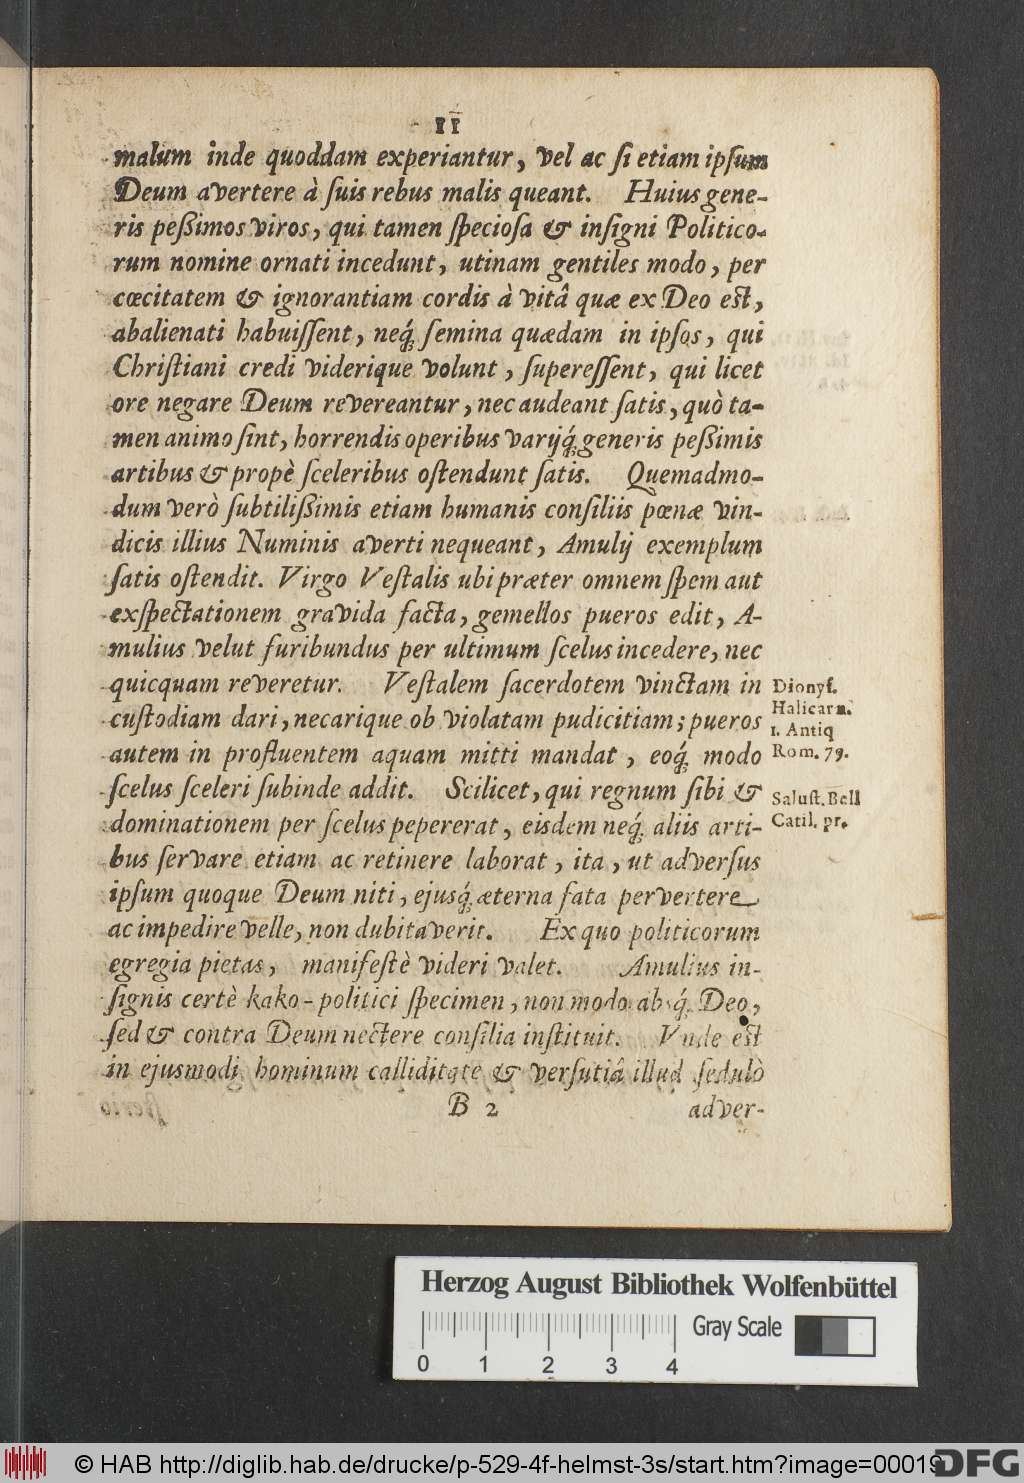 11
malum inde quoddam experiantur, vel ac ſi etiam ipſum
Deum avertere à ſuis rebus malis queant. Huius gene-
ris peßimos viros, qui tamen ſpecioſa & inſigni Politico-
rum nomine ornati incedunt, utinam gentiles modo, per
cœcitatem & ignorantiam cordis à vitâ quæ ex Deo eſt,
abalienati habuiſſent, neq́; ſemina quædam in ipſos, qui
Chriſtiani credi viderique volunt, ſupereſſent, qui licet
ore negare Deum revereantur, nec audeant ſatis, quò ta-
men animo ſint, horrendis operibus varijq́; generis peßimis
artibus & propè ſceleribus oſtendunt ſatis. Quemadmo-
dum verò ſubtilißimis etiam humanis conſiliis pœnæ vin-
dicis illius Numinis averti nequeant, Amulij exemplum
ſatis oſtendit. Virgo Veſtalis ubi præter omnem ſpem aut
exſpectationem gravida facta, gemellos pueros edit, A-
mulius velut furibundus per ultimum ſcelus incedere, nec
quicquam reveretur. Veſtalem ſacerdotem vinctam in
cuſtodiam dari, necarique ob violatam pudicitiam; pueros
autem in profluentem aquam mitti mandat, eoq́; modo
ſcelus ſceleri ſubinde addit. Scilicet, qui regnum ſibi &
dominationem per ſcelus pepererat, eisdem neq́; aliis arti-
bus ſervare etiam ac retinere laborat, ita, ut adverſus
ipſum quoque Deum niti, ejusq́; æterna fata pervertere
ac impedire velle, non dubitaverit. Ex quo politicorum
egregia pietas, manifeſtè videri valet. Amulius in-
ſignis certè kako-politici ſpecimen, non modo absq́; Deo,
ſed & contra Deum nectere conſilia inſtituit. Vnde eſt
in ejusmodi hominum calliditate & verſutiâ illud ſedulò
B 2 adver-
Dionyſ.
Halicarn.
1. Antiq
Rom. 79.
Saluſt. Bell
Catil. pr.
Herzog August Bibliothek Wolfenbüttel
Gray Scale
0 1 2 3 4
© HAB http://diglib.hab.de/drucke/p-529-4f-helmst-3s/start.htm?image=00019
DFG